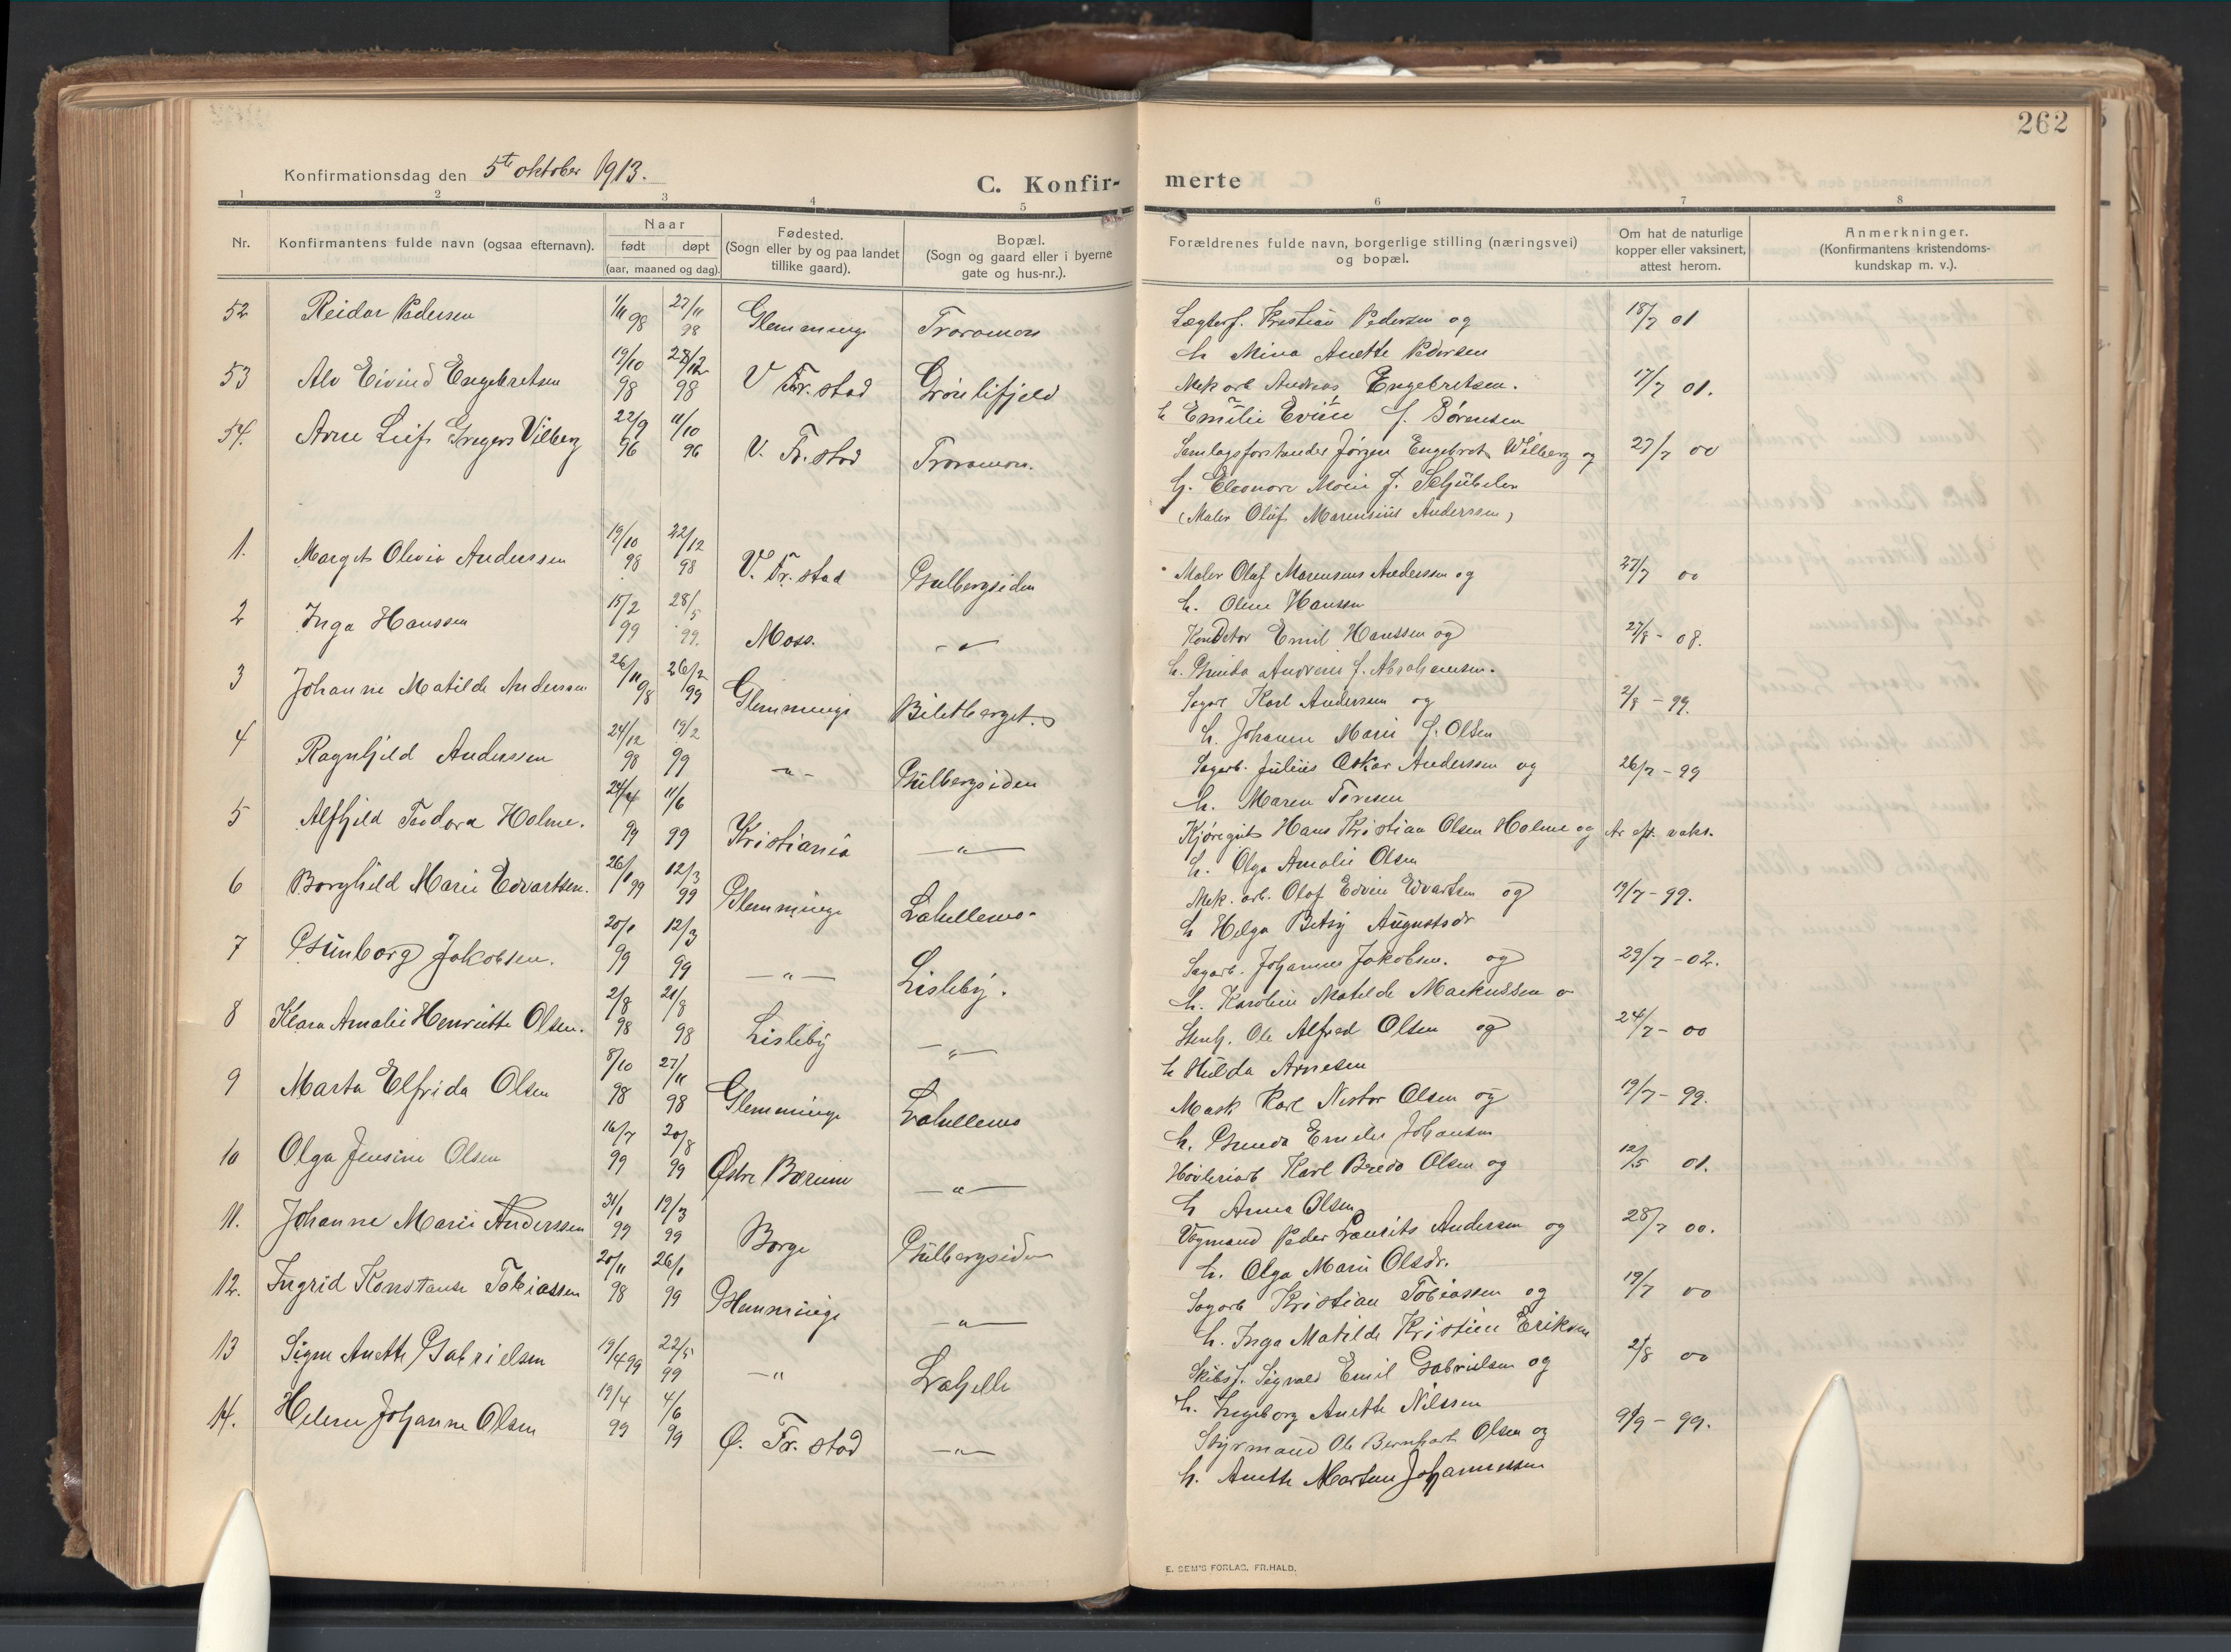 262
Konfirmationsdag den 5te oktober 1913.
C. Konfir- merte
1 2 3 4 5 6 7 8
Nr.
Konfirmantens fulde navn (ogsaa efternavn).
Naar
født døpt
(aar, maaned og dag).
Fødested.
(Sogn eller by og paa landet
tillike gaard).
Bopæl.
(Sogn og gaard eller i byerne
gate og hus-nr.).
Forældrenes fulde navn, borgerlige stilling (næringsvei)
og bopæl.
Om hat de naturlige
kopper eller vaksinert,
attest herom.
Anmerkninger.
(Konfirmantens kristendoms-
kundskap m. v.).
52 Reidar Pedersen 1/11 98 27/11 98 Glemminge Traramoen Kristian Pedersen og 18/7 01
h Mina Anette Pedersen
53 Alv Eivind Engebretsen 19/10 98 28/12 98 V Fr.stad Grönlifjeld Mek arb Andreas Engebretsen. 17/7 01.
h Emilie Evine f. Sørensen
54. Arne Leif Gregers Vilberg 22/9 96 11/10 96 V. Fr.stad Traramoen. Samlagsforstander Jørgen Engebret Wilberg og 27/7 00
h. Eleonore Marie f. Schübeler
(Maler Oluf Marensius Anderssen)
1. Margit Olivia Anderssen 19/10 98 22/12 98 V. Fr.stad Gulbergsiden Maler Olaf Marensius Anderssen og 27/7 00
h. Oline Hanssen
2 Inga Hanssen 15/2 99 28/5 99. Moss. - " - Konditor Emil Hanssen og 27/8 - 08.
h. Andrine f. Abrahamsen.
3 Johanne Matilde Andersen 26/11 98 26/2 99 Glemminge Biletberget. Karl Andersen og 2/8 - 99.
h. Johanne Marie f. Olsen
4 Ragnhjeld Anderssen 24/12 98 19/2 99 - " - Gulbergsiden Sagarb. Julius Oskar Anderssen og 26/7 - 99
h. Maren Toresen
5 Alfhjeld Teodora Holme. 24/4 99 11/6 99 Kristiania - " - Kjøregut Hans Kristian Olsen Holme og vaks.
h. Olga Amalie Olsen
6 Borghild Marie Edvartsen. 26/1 99 12/3 99 Glemminge Lahellemo. Mek. arb. Olaf Edvin Edvartsen og 19/7 - 99.
h Helga Betsy Augustsdr
7 Gunborg Jakobsen. 20/1 99 12/3 99 - " - Lisleby. Sagarb. Johannes Jakobsen. og 29/7 - 02.
h. Karoline Matilde Markussen
8 Klara Amalie Henriette Olsen. 2/8 98 21/8 98 Lisleby - " - Stenh. Ole Alfred Olsen og 24/7 - 00
h Hulda Arnesen
9 Marta Elfrida Olsen 8/10 98 27/11 98 Glemminge Lahellemo Mask Karl Nestor Olsen og 19/7 - 99.
h. Gunda Emelie Johansen
10 Olga Jensine Olsen 16/7 99 20/8 99 Østre Bærum - " - Høvleriarb Karl Bredo Olsen og 12/5 01.
h Anna Olsen
11. Johanne Marie Anderssen 31/1 99 12/3 99 Borge Gulbergsiden Vognmand Peder Laurits Andersen og 28/7 00.
h. Olga Marie Olsdr.
12. Ingrid Konstanse Tobiassen 20/11 98 26/1 99 Glemminge - " - Sagarb Kristian Tobiassen og 19/7 00
h. Inga Matilde Kristine Eriksen
13 Signe Anette Gabrielsen 19/4 99 22/5 99 - " - Lahelle Skibsf. Sigvald Emil Gabrielsen og 2/8 00
h. Ingeborg Anette Nilssen
14. Helene Johanne Olsen 19/4 99 4/6 99 Ø. Fr.stad - " - Styrmand Ole Bernhart Olsen og 9/9 - 99.
h. Anette Martine Johannessen
E. SEM'S FORLAG, FR.HALD.